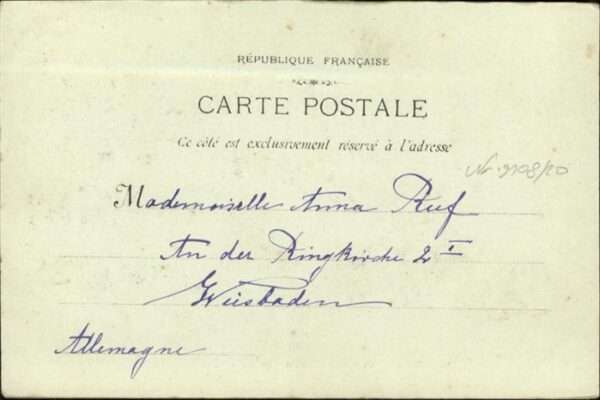 RÉPUBLIQUE FRANÇAISE
CARTE POSTALE
Ce côté est exclusivement réservé à l'adresse
Nr 9108/20
Mademoiselle Anna Ruf
An der Ringkirche 2 I
Wiesbaden
Allemagne